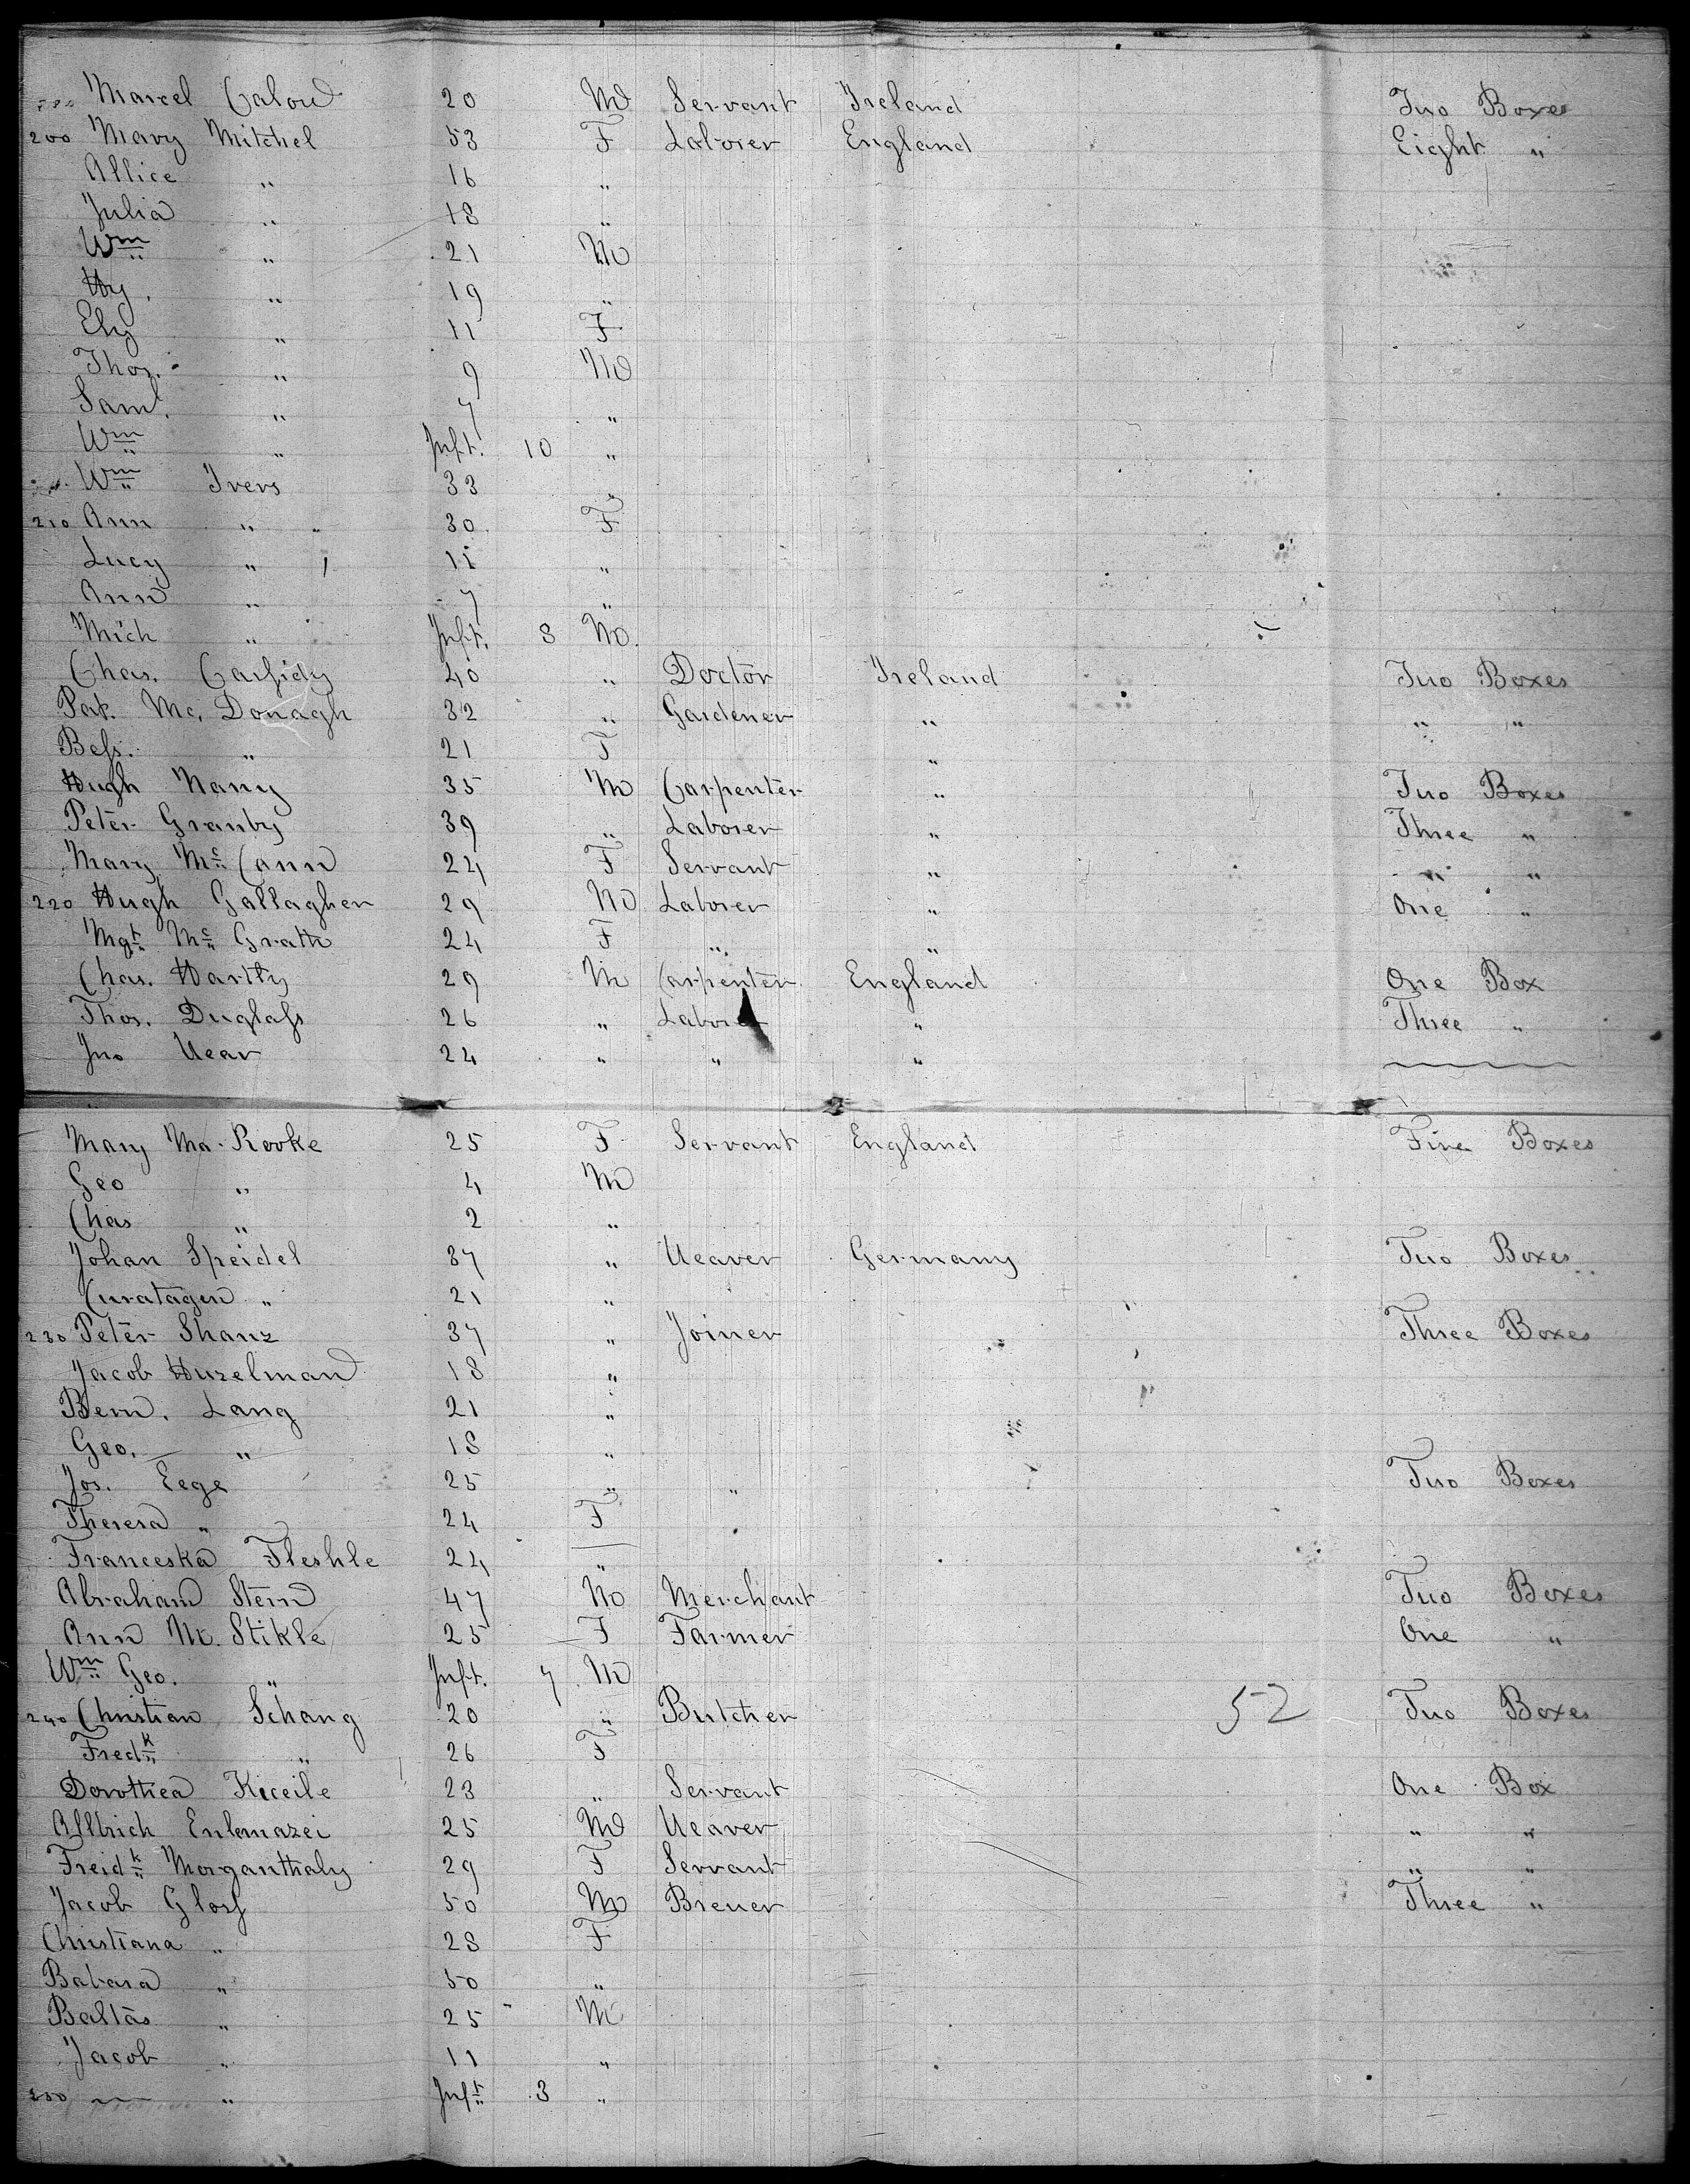 Marcel Calow 20 M Servant Ireland Two Boxes
200 Mary Mitchel 53 F Laborer England Eight "
Allice " 16 "
Julia " 18 "
Wm " 21 M
Hy. " 19 "
Eliz " 11 F
Thos. " 9 M
Saml. " 7 "
Wm " Inft. 10 "
Wm Ivers 33 "
210 Ann " 30 F
Lucy " 11 "
Ann " 7 "
Mich " Inft. 8 M
Chas. Cassidy 40 " Doctor Ireland Two Boxes
Pat. Mc. Donagh 32 " Gardener " " "
Bess. " 21 F "
Hugh Nany 35 M Carpenter " Two Boxes
Peter Granby 39 " Laborer " Three "
Mary Mc Cann 24 F Servant " " "
220 Hugh Gallagher 29 M Laborer " One "
Mgt Mc Grath 24 F " "
Chas. Hartly 29 M Carpenter England One Box
Thos. Duglass 26 " Laborer " Three "
Jno Wear 24 " " "
Mary Ma. Rooke 25 F Servant England Five Boxes
Geo " 4 M
Chas " 2 "
Johan Speidel 37 " Weaver Germany Two Boxes
Curatagen " 21 "
230 Peter Shanz 37 " Joiner Three Boxes
Jacob Huzelman 18 "
Bern. Lang 21 "
Geo. " 18 "
Jos. Eege 25 " " Two Boxes
Theresa " 24 F
Franceska Fleshle 24 "
Abraham Stern 47 M Merchant Two Boxes
Ann M. Stikle 25 F Farmer One "
Wm Geo. " Inft. 7 M
240 Christian Schang 20 " Butcher 52 Two Boxes
Fredk " 26 F
Dorothea Kiceile 23 " Servant One Box
Alltrich Enlemazei 25 M Weaver " "
Freidk Morganthaly 29 F Servant " "
Jacob Gloss 50 M Brewer Three "
Christiana " 28 F
Babara " 50 "
Baltas " 25 M
Jacob " 11 "
250 " Inft 3 "